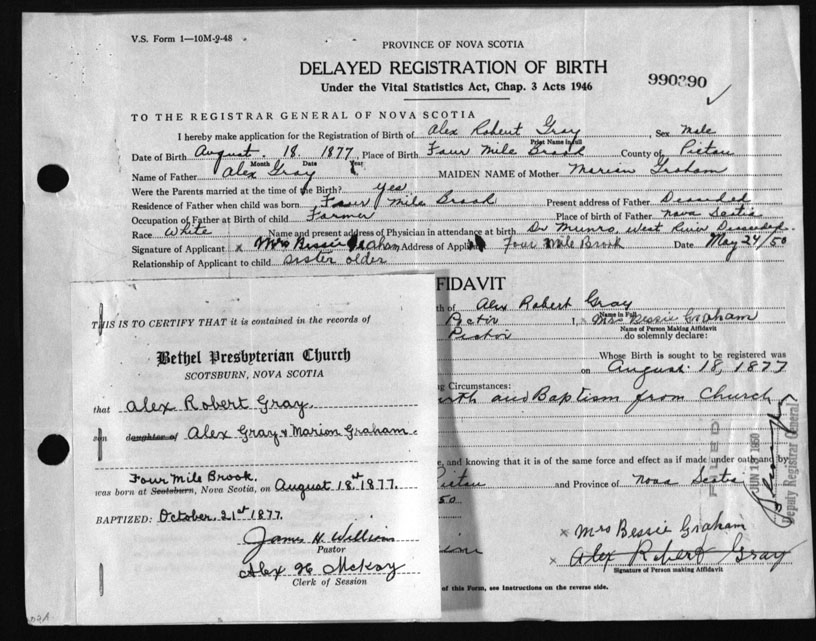 V.S. Form 1—10M-9-48
PROVINCE OF NOVA SCOTIA
DELAYED REGISTRATION OF BIRTH
990390
Under the Vital Statistics Act, Chap. 3 Acts 1946
TO THE REGISTRAR GENERAL OF NOVA SCOTIA
I hereby make application for the Registration of Birth of Alex Robert Gray, Sex Male
Print Name in full
Date of Birth August 18, 1877, Place of Birth Four Mile Brook County of Pictou
Month Date Year
Name of Father Alex Gray MAIDEN NAME of Mother Marion Graham
Were the Parents married at the time of the Birth? yes
Residence of Father when child was born Four Mile Brook Present address of Father Deceased
Occupation of Father at Birth of child Farmer Place of birth of Father Nova Scotia
Race White Name and present address of Physician in attendance at birth Dr Munro, West River Deceased.
Signature of Applicant x Mrs Bessie Graham Address of Four Mile Brook Date May 24/50
Relationship of Applicant to child sister older
FIDAVIT
th of Alex Robert Gray
Name in Full
I, Mrs Bessie Graham
Name of Person Making Affidavit
do solemnly declare:
Whose Birth is sought to be registered was
on August 18, 1877
ng Circumstances:
rth and Baptism from Church
e, and knowing that it is of the same force and effect as if made under oath and by
and Province of Nova Scotia
50
x Mrs Bessie Graham
x Alex Robert Gray
Signature of Person making Affidavit
of this Form, see Instructions on the reverse side.
FILED
Deputy Registrar General
THIS IS TO CERTIFY THAT it is contained in the records of
Bethel Presbyterian Church
SCOTSBURN, NOVA SCOTIA
that Alex Robert Gray.
son daughter of Alex Gray & Marion Graham
Four Mile Brook.
was born at Scotsburn, Nova Scotia, on August 18st 1877.
BAPTIZED: October, 21st 1877.
James H. William
Pastor
Alex H McKay
Clerk of Session